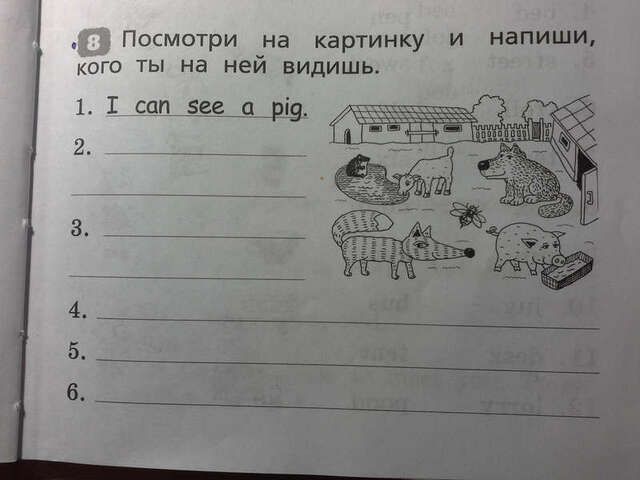 8 Посмотри на картинку и напиши,
кого ты на ней видишь.
1. I can see a pig.
2.
3.
4.
5.
6.